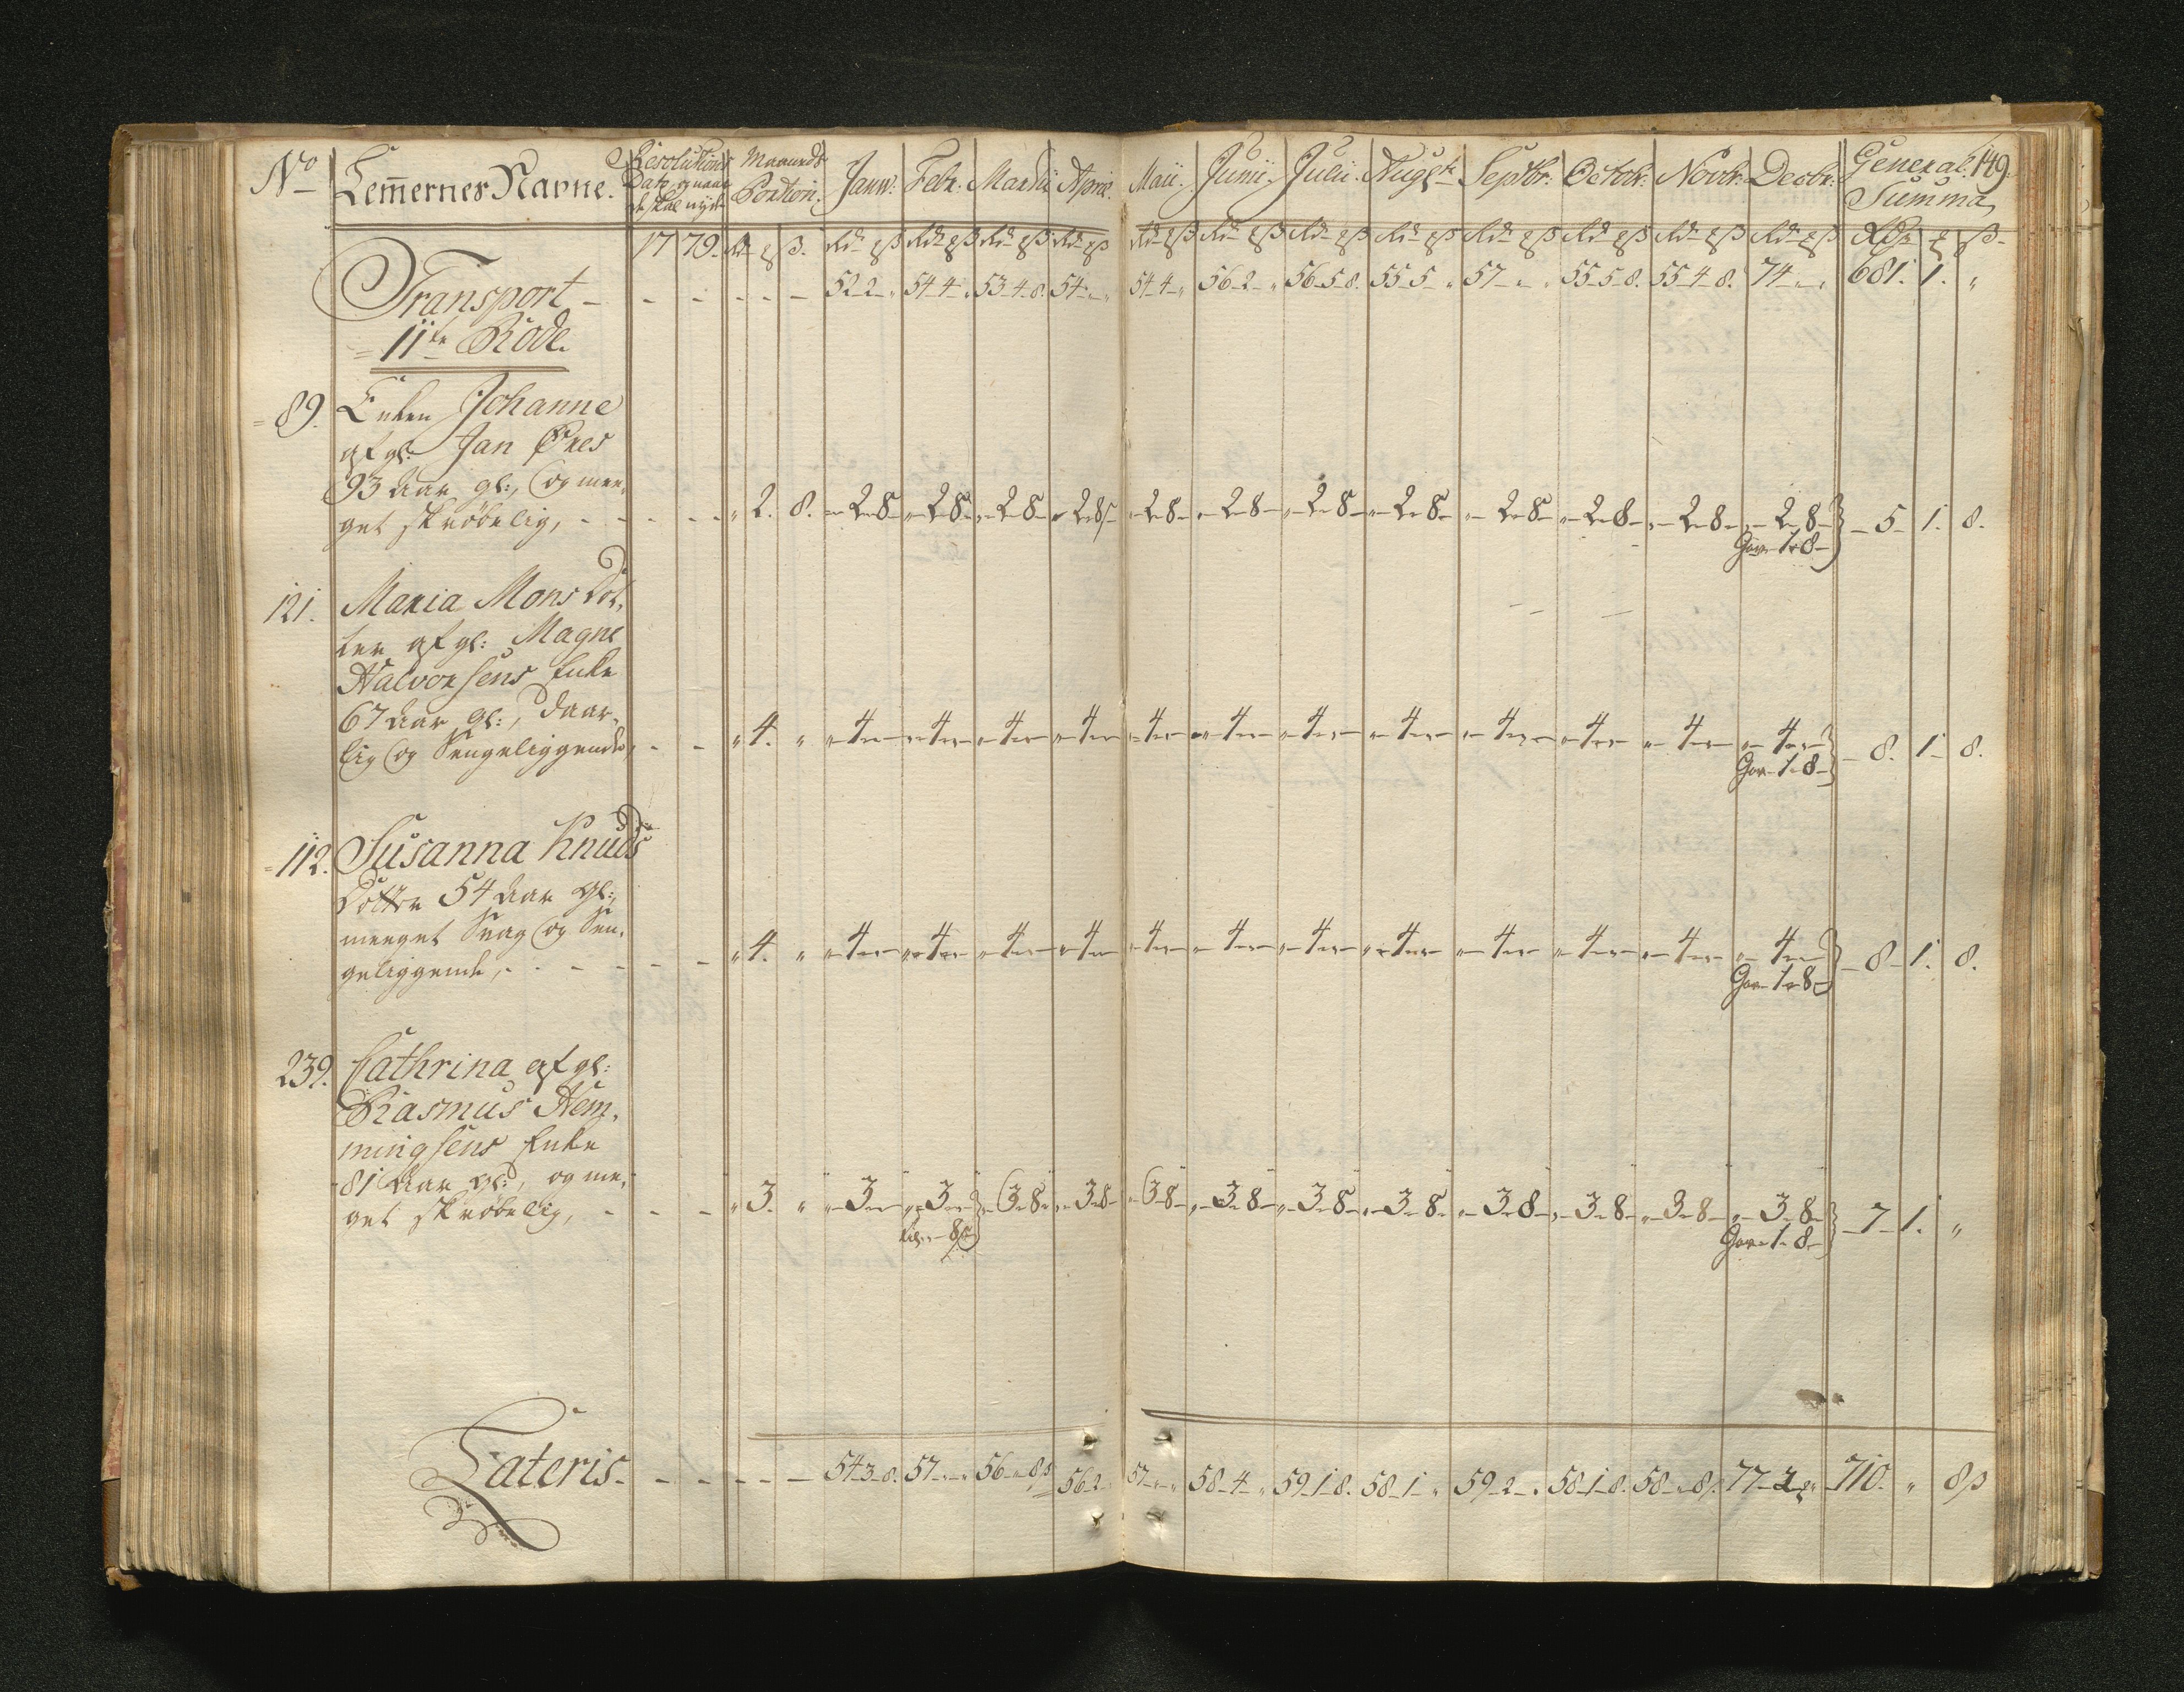 No Lemmernes Navne. Resolutions Maaneds Janu: Febr: Martii April. Maii. Junii. Julii. Augst: Septbr: Octob: Novb: Decbr: General. 149.
Dato og naar Portion. Summa
de skal nyde
17 79. Rd ß. Rd ß Rd ß Rd ß Rd ß Rd ß Rd ß Rd ß Rd ß Rd ß Rd ß Rd ß Rd ß Rdr ß
Transport - - - - - - 52-2-" 54-4-" 53-4-8. 54-"-" 54-4-" 56-2-" 56-5-8. 55-5-" 57-"-" 55-5-8. 55-4-8. 74-"-" 681. 1. "
11te Rode.
89. Enken Johanne
afgl: Jan Ores
93 Aar gl:, og mee-
get skrøbelig, - - - - " 2. 8. "-2-8- "-2-8- "-2-8- "-2-8- "-2-8- "-2-8- "-2-8- "-2-8- "-2-8- "-2-8- "-2-8- "-2-8- } - 5 - 1. 8.
Gav-1-8-
121. Maria Mons Dot-
ter afgl: Magne
Halvorsens Enke
67 Aar gl:, daar-
lig og Sengeliggende, - - " 4. " "-4-"- "-4-"- "-4-"- "-4-"- "-4-"- "-4-"- "-4-"- "-4-"- "-4-"- "-4-"- "-4-"- "-4-"- } - 8. 1 - 8.
Gav-1-8-
112. Susanna Knuds
Dotter 54 Aar gl:,
meeget Svag og Sen-
geliggende, - - - - - - " 4. " "-4-"- "-4-"- "-4-"- "-4-"- "-4-"- "-4-"- "-4-"- "-4-"- "-4-"- "-4-"- "-4-"- "-4-"- } - 8 - 1. 8.
Gav-1-8-
239. Cathrina afgl:
Rasmus Hem-
mingsens Enke
81 Aar gl:, og me-
get skrøbelig, - - - - " 3. " "-3-"- "-3-"- } "-3-8- "-3-8- "-3-8- "-3-8- "-3-8- "-3-8- "-3-8- "-3-8- "-3-8- "-3-8- } - 7 - 1. "
-8ß Gav-1-8-
Lateris - - - - - - 54-3-8. 57-"-" 56-"-8ß 56-2-" 57-"-" 58-4-" 59-1-8. 58-1-" 59-2-" 58-1-8. 58-"-8ß 77-2-" 710. " 8ß